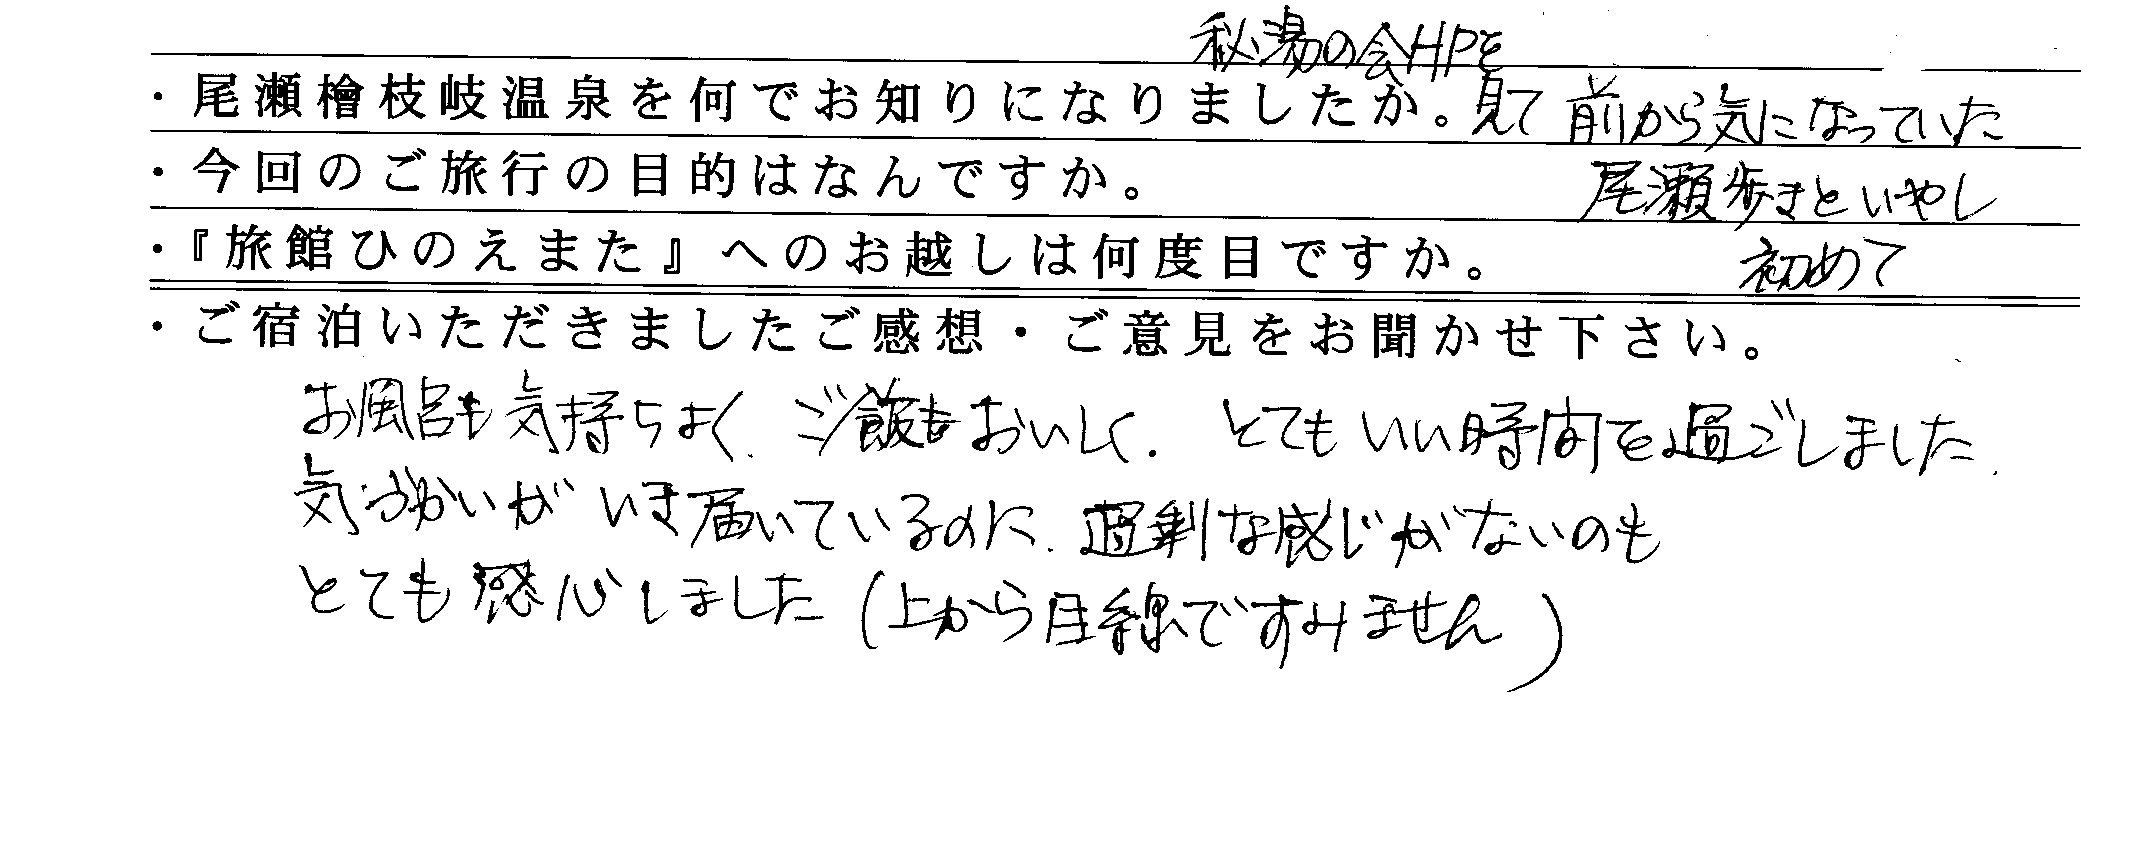 秘湯の会HPを
・尾瀬檜枝岐温泉を何でお知りになりましたか。見て 前から気になっていた
・今回のご旅行の目的はなんですか。 尾瀬歩きといやし
・『旅館ひのえまた』へのお越しは何度目ですか。 初めて
・ご宿泊いただきましたご感想・ご意見をお聞かせ下さい。
お風呂も気持ちよく、ご飯もおいしく、とてもいい時間を過ごしました。
気づかいがいき届いているのに、過剰な感じがないのも
とても感心しました(上から目線ですみません)